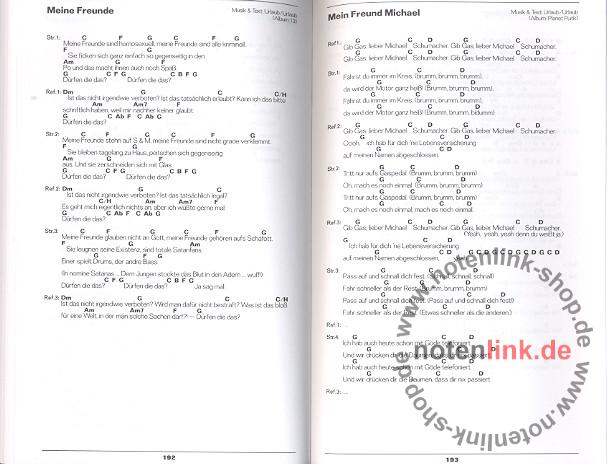 Meine Freunde
Musik & Text: Urlaub/Urlaub
(Album: 13)
C F G C F G
Str.1: Meine Freunde sind homosexuell, meine Freunde sind alle kriminell.
F G
Sie ficken sich ganz einfach so gegenseitig in den
Am G F
Po und das macht ihnen auch noch Spaß
G C F G C B F G
Dürfen die das? Dürfen die das?
Ref.1: Dm G C C/H
Ist das nicht irgendwie verboten? Ist das tatsächlich erlaubt? Kann ich das bitte
Am Am7 F
schriftlich haben, weil mir nachher keiner glaubt.
G C Ab F C Ab G
Dürfen die das?
C F G C F G
Str.2: Meine Freunde stehn auf S & M, meine Freunde sind nicht grade verklemmt.
F G
Sie bleiben tagelang zu Haus, peitschen sich gegenseitig
Am G F
aus. Und sie zerschneiden sich mit Glas
G C F G C B F G
Dürfen die das? Dürfen die das?
Ref.2: Dm G C
Ist das nicht irgendwie verboten? Ist das tatsächlich legal?
C/H Am Am7 F
Es geht mich eigentlich nichts an, aber ich wüßte gerne mal:
G C Ab F C Ab G
Dürfen die das?
C F G C F G
Str.3: Meine Freunde glauben nicht an Gott, meine Freunde gehören aufs Schafott.
F G
Sie leugnen seine Existenz, sind totale Satanfans
Am G F
Einer spielt Drums, der andre Bass
(In nomine Satanas ... Dem Jungen stockte das Blut in den Adern ... wuff!)
G C F G C B F G
Dürfen die das? Dürfen die das? Ja sag mal
Ref.3: Dm G C C/H
Ist das nicht irgendwie verboten? Wird man dafür nicht bestraft? Was ist das bloß
Am Am7 F G
für eine Welt, in der man solche Sachen darf?! – Dürfen die das?
192
Mein Freund Michael
Musik & Text: Urlaub/Urlaub
(Album: Planet Punk)
G C D G C D
Ref.1: Gib Gas, lieber Michael Schumacher. Gib Gas, lieber Michael Schumacher.
G C D G C D
Gib Gas, lieber Michael Schumacher. Gib Gas, lieber Michael Schumacher.
G C D
Str.1: Fährst du immer im Kreis, (brumm, brumm, brumm).
G C D
da wird der Motor ganz heiß! (Brumm, brumm, brumm)
G C D
Fährst du immer im Kreis, (brumm, brumm, brumm).
G C D
da wird der Motor ganz heiß! (Brumm, brumm, bidumm)
G C D G C D
Ref.2: Gib Gas, lieber Michael Schumacher. Gib Gas, lieber Michael Schumacher.
G C D
Oooh, ich hab für dich 'ne Lebensversicherung
G C D
auf meinen Namen abgeschlossen.
G C D
Str.2: Tritt nur aufs Gaspedal. (Brumm, brumm, brumm)
G C D
Oh, mach es noch einmal. (Brumm, brumm, brumm)
G C D
Tritt nur aufs Gaspedal. (Brumm, brumm, brumm)
G C D
Oh, mach es noch einmal, mach es noch einmal.
G C D G C D
Ref.3: Gib Gas, lieber Michael Schumacher. Gib Gas, lieber Michael Schumacher.
(Yeah, yeah, yeah denn du weißt ja.)
G C D
Ich hab für dich 'ne Lebensversicherung
auf meinen Namen abgeschlossen.
G C D
Str.3: Pass auf und schnall dich fest. (Schnell, schnell, schnell)
G C D
Fahr schneller als der Rest. (Brumm, brumm, brumm)
G C D
Pass auf und schnall dich fest. (Pass auf und schnall dich fest!)
G C D
Fahr schneller als der Rest. (Etwas schneller als die anderen.)
Ref.1: ...
G C D
Str.4: Ich hab auch heute schon mit Göde telefoniert.
G C D
Und wir drücken dir die Daumen, dass dir nix passiert.
G C D
Ich hab auch heute schon mit Göde telefoniert.
G C D
Und wir drücken dir die Daumen, dass dir nix passiert.
Ref.3: ...
193
notenlink.de
www.notenlink-shop.de
www.notenlink-shop.de